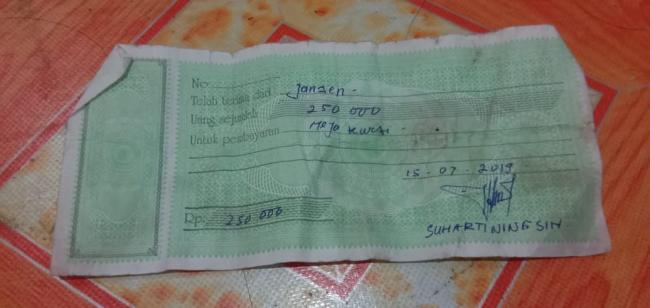 No.
Telah terima dari Jansen -
Uang sejumlah 250 000
Untuk pembayaran Meja kursi -
15 - 07 - 2019
Rp. 250 000
SUHARTININGSIH